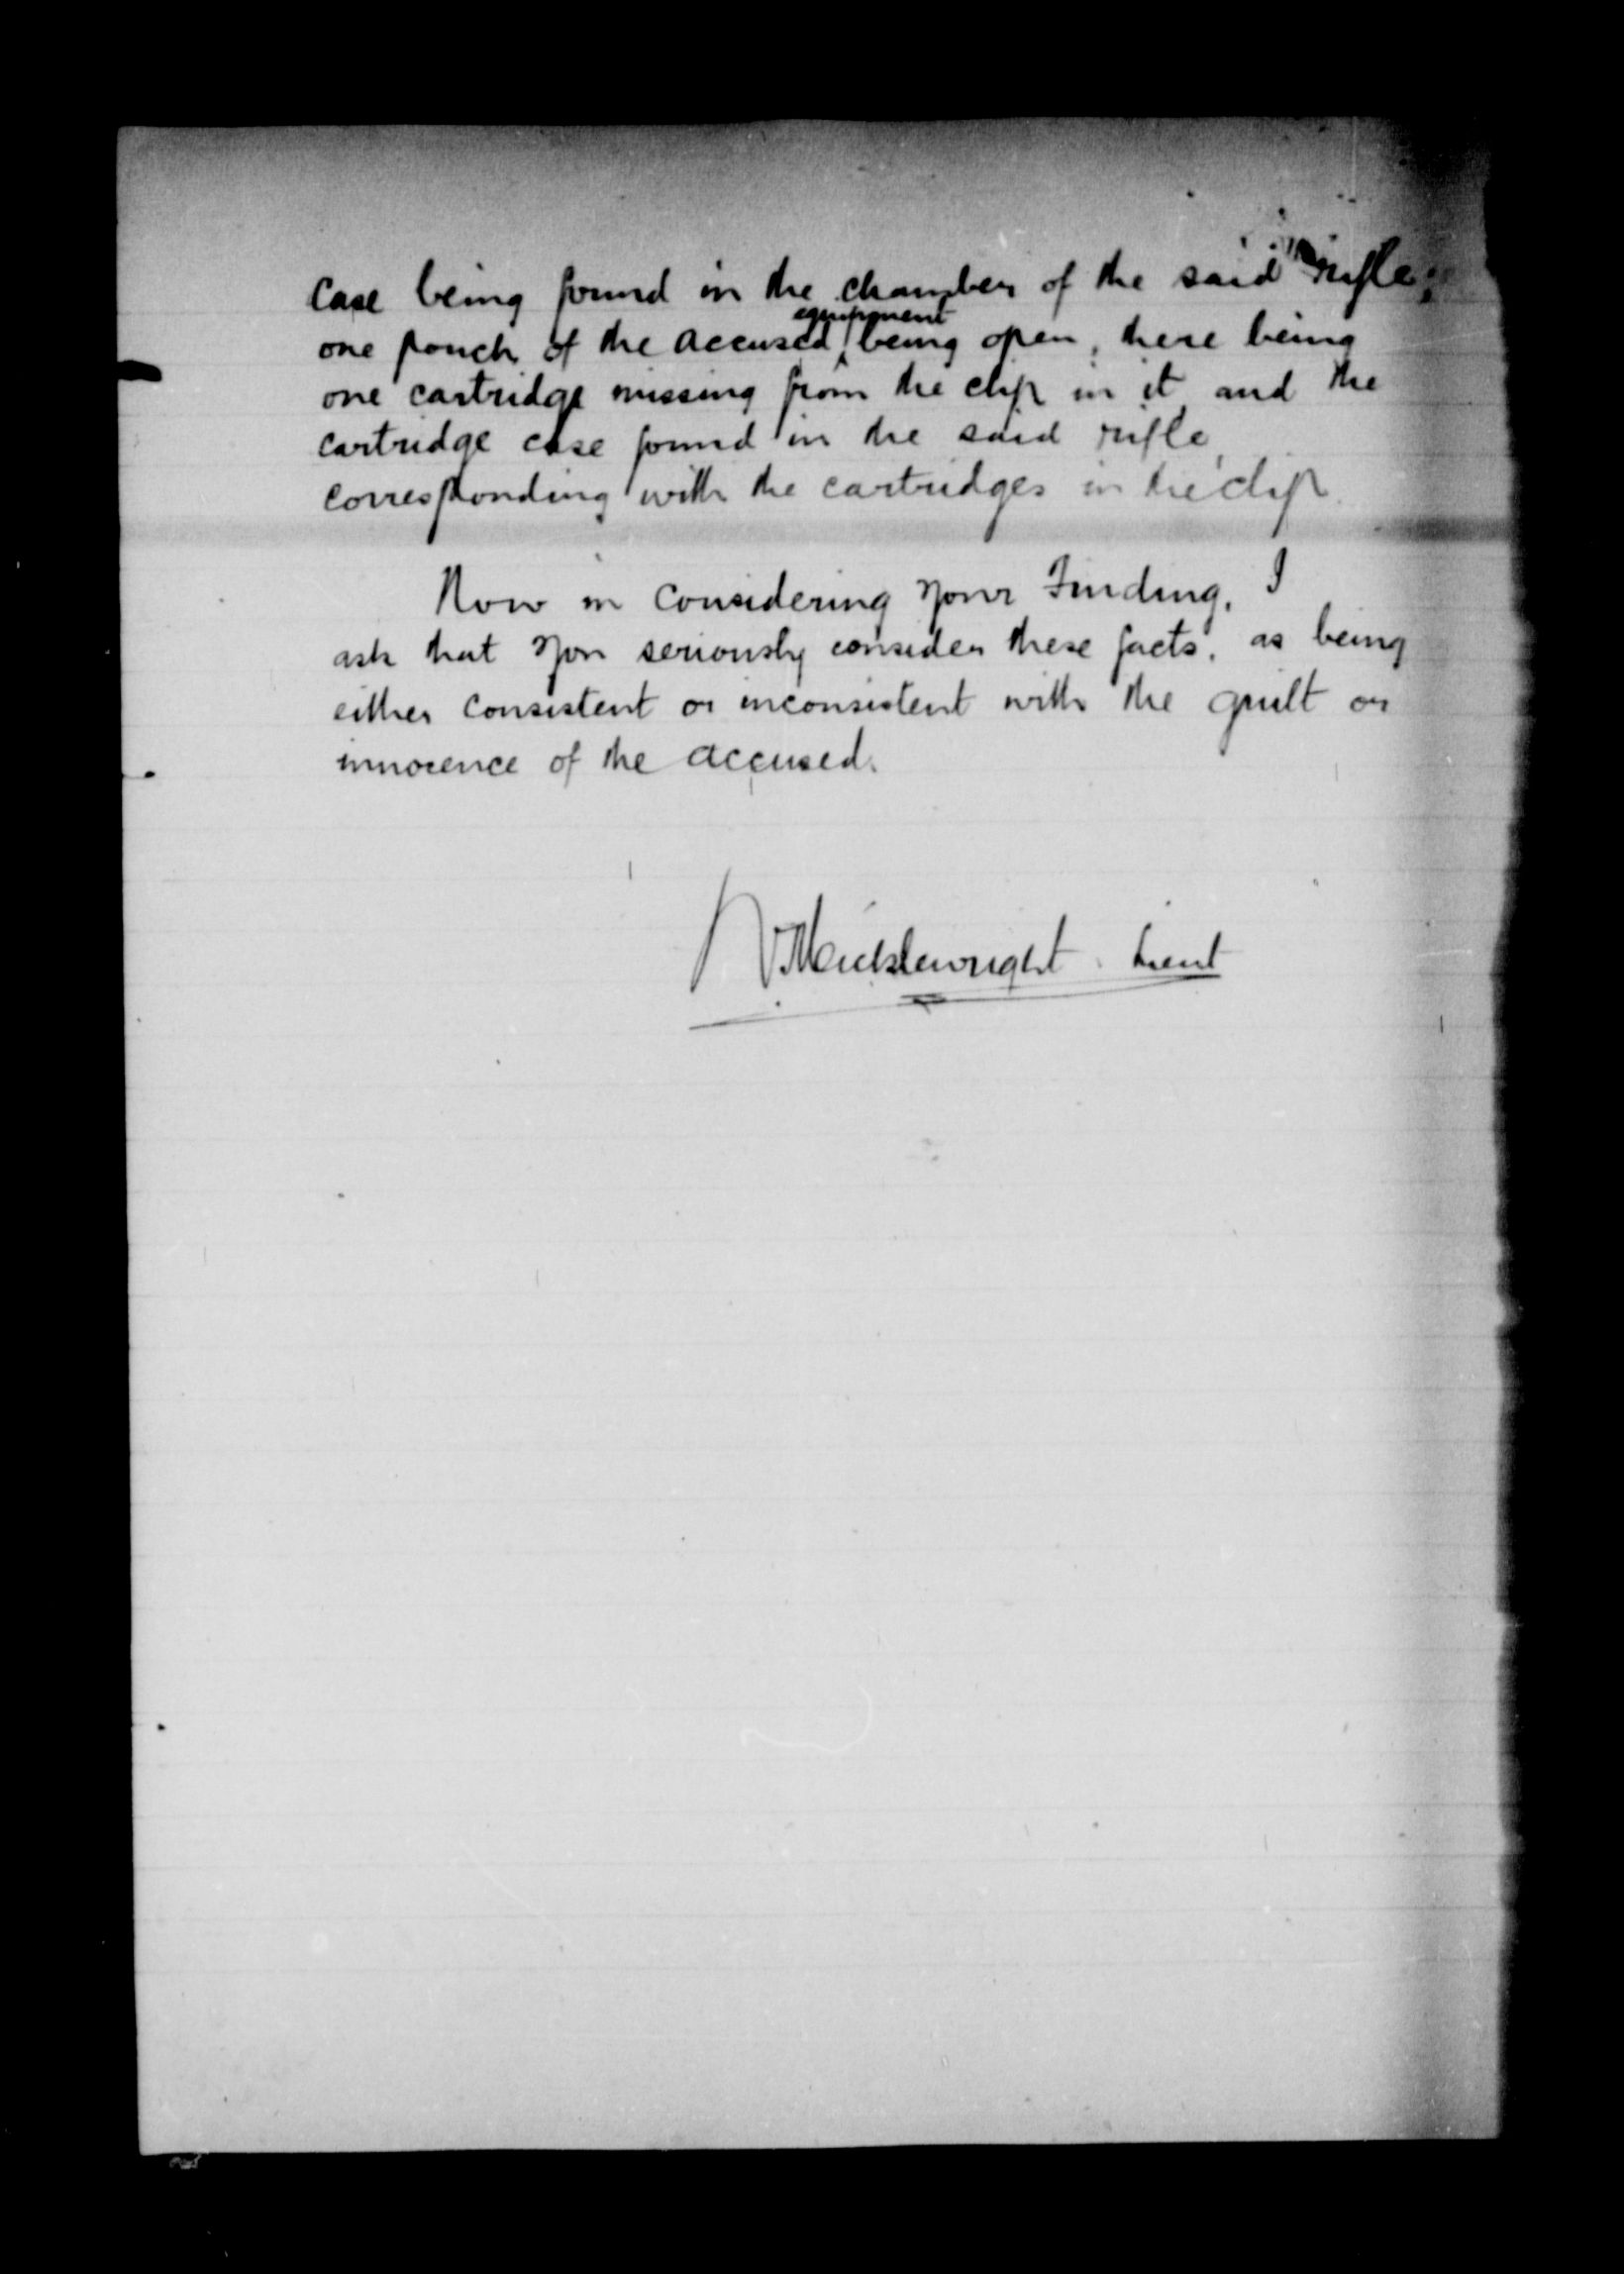 case being found in the chamber of the said rifle;
one pouch of the accused equipment being open, there being
one cartridge missing from the clip in it and the
cartridge case found in the said rifle,
corresponding with the cartridges in the clip.
Now in considering your Finding, I
ask that you seriously consider these facts, as being
either consistent or inconsistent with the guilt or
innocence of the accused.
Micklewright. Lieut